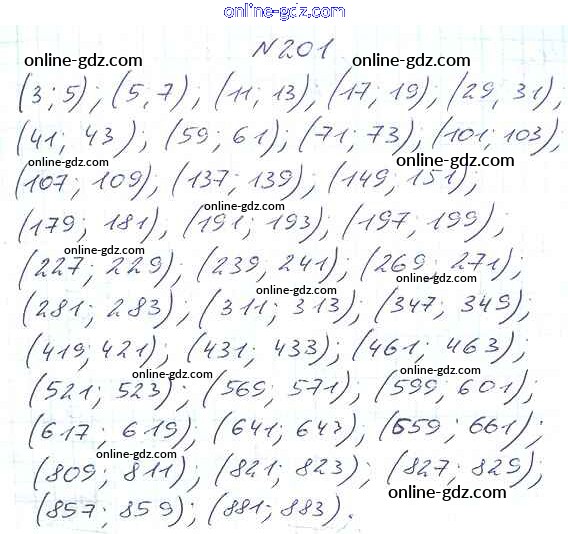 online-gdz.com
N 201
online-gdz.com online-gdz.com
(3; 5); (5; 7); (11; 13); (17; 19); (29, 31);
(41; 43); (59; 61); (71; 73); (101; 103);
online-gdz.com online-gdz.com
(107; 109); (137; 139); (149; 151);
online-gdz.com
(179; 181), (191; 193); (197; 199);
online-gdz.com
(227; 229); (239; 241); (269; 271);
online-gdz.com online-gdz.com
(281; 283); (311; 313); (347; 349);
(419; 421); (431; 433); (461; 463);
online-gdz.com online-gdz.com
(521; 523); (569; 571); (599; 601);
(617; 619); (641; 643); (659; 661);
online-gdz.com online-gdz.com
(809; 811); (821; 823); (827; 829);
online-gdz.com
(857; 859); (881; 883).